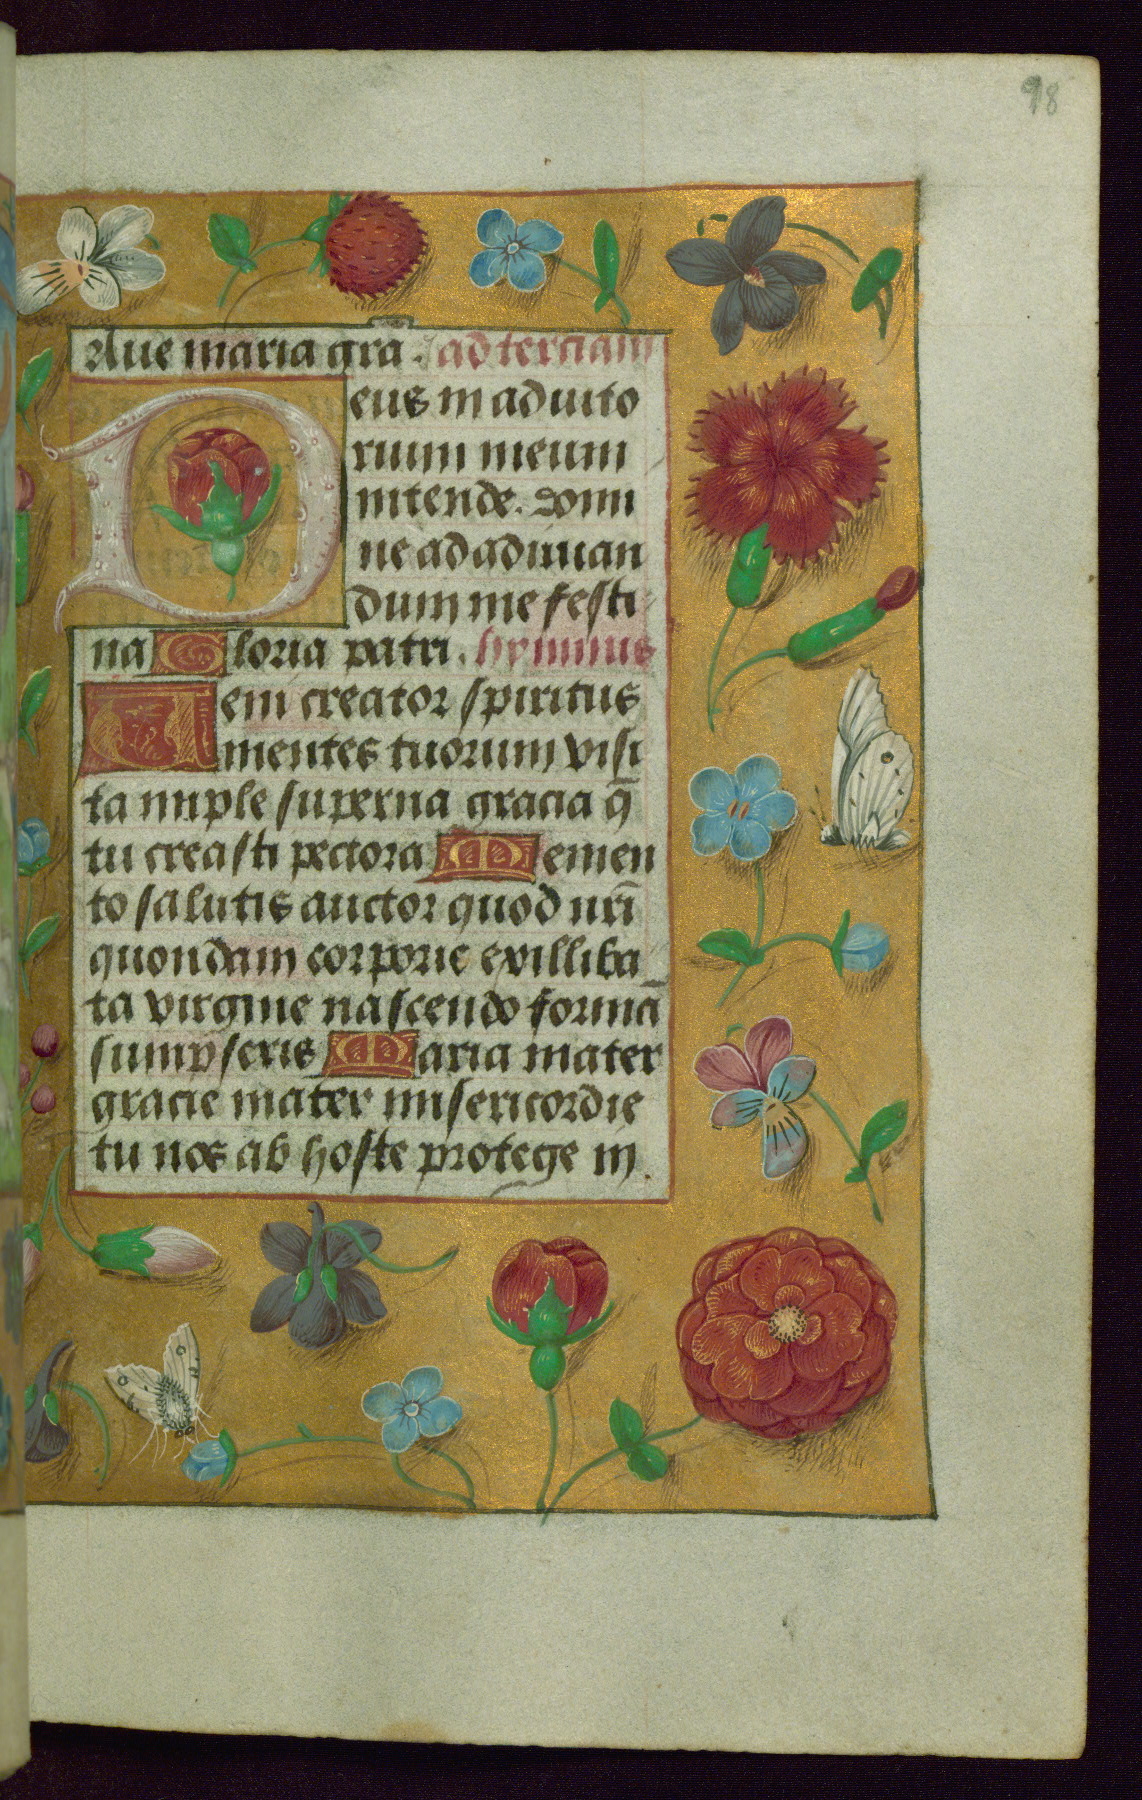 98
Aue maria gra. ad terciam
Deus in adiuto
rium meum
intende. domi
ne ad adiuuan
dum me festi
na Gloria patri. hympnus
Ueni creator spiritus
mentes tuorum visi
ta imple superna gracia q̄
tu creasti pectora Memen
to salutis auctor quod nr̄i
quondam corporis exilliba
ta virgine nascendo formā
sumpseris Maria mater
gracie mater misericordie
tu nos ab hoste protege in